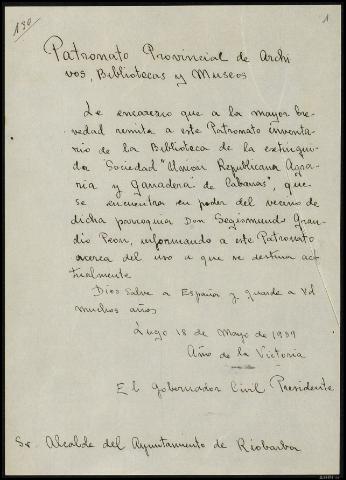 130
1
Patronato Provincial de Archi
vos, Bibliotecas y Museos
Le encarezco que a la mayor bre
vedad remita a este Patronato inventa-
rio de la Biblioteca de la extingui-
da Sociedad "Unión Republicana Agra-
ria y Ganadera de Cabanas", que
se encuentra en poder del vecino de
dicha parroquia Don Segismundo Gran-
dío Peon, informando a este Patronato
acerca del uso a que se destina act
tualmente
Dios salve a España y guarde a Vd
muchos años
Lugo 18 de Mayo de 1939
Año de la Victoria
El Gobernador Civil Presidente
Sr. Alcalde del Ayuntamiento de Riobarba